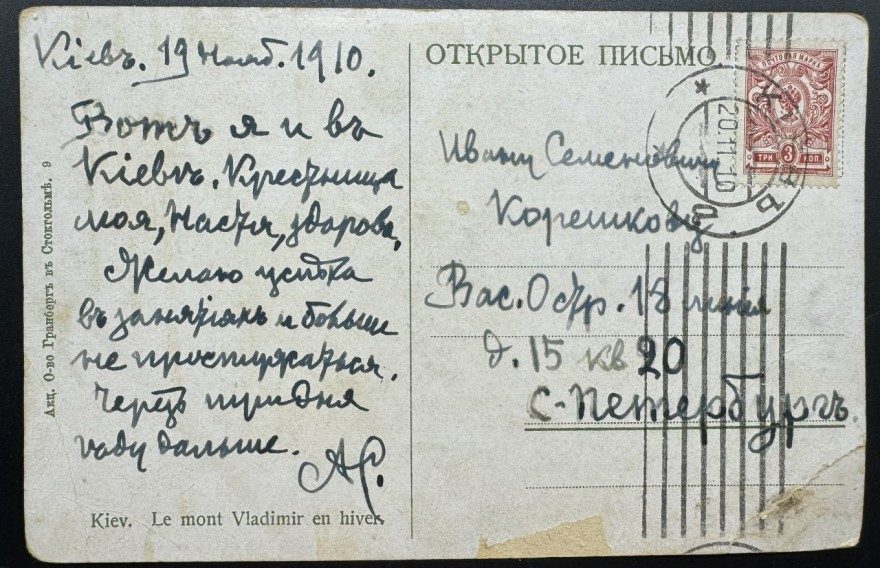 Кіевъ. 19 нояб. 1910.
Вотъ я и въ
Кіевѣ. Крестница
моя, Настя, здорова.
Желаю успѣха
въ занятіяхъ и больше
не простужаться.
Черезъ три дня
ѣду дальше.
АС.
Kiev. Le mont Vladimir en hiver.
Акц. О-во Гранбергъ въ Стокгольмѣ. 9
ОТКРЫТОЕ ПИСЬМО
ПОЧТОВАЯ МАРКА
ТРИ 3 КОП.
КІЕВЪ
20 11 10
Ивану Семеновичу
Корешкову
Вас. Остр. 18 линія
д. 15 кв 20
С-Петербургъ.